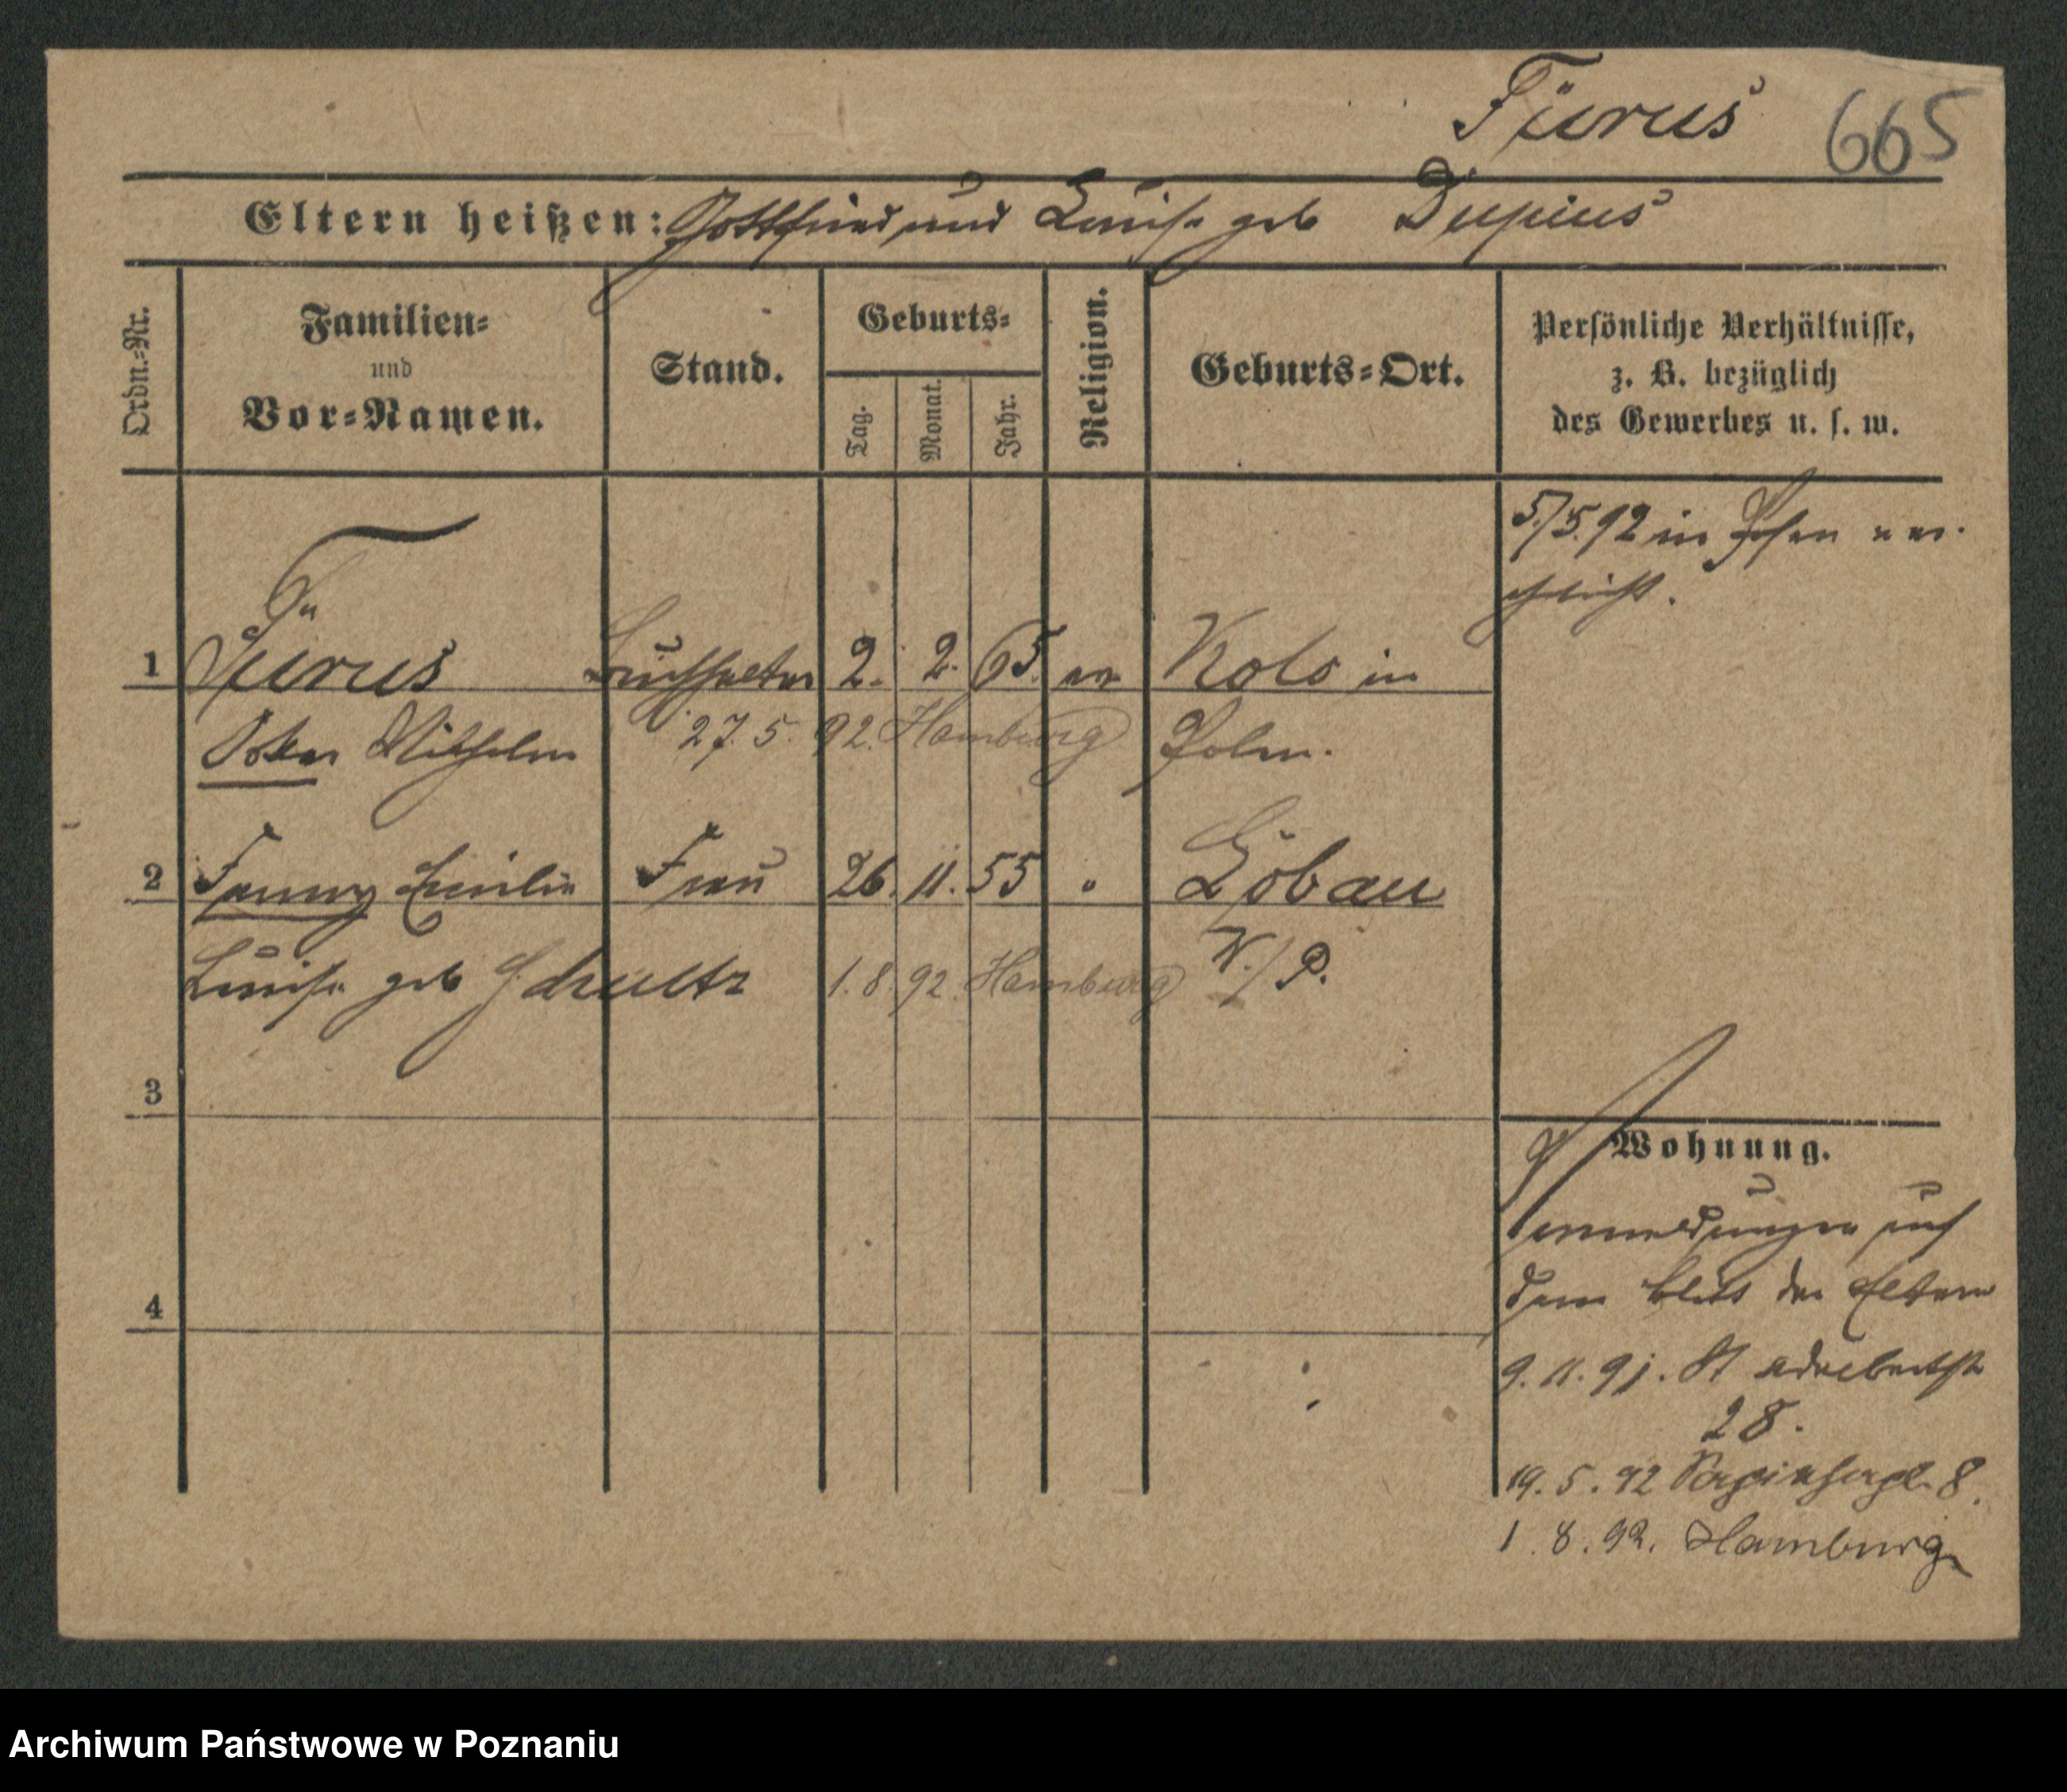 Türus 665
Eltern heißen: Gottfried und Luise geb Dupius
Ordn.-Nr.
Familien-
und
Vor-Namen.
Stand.
Geburts-
Tag.
Monat.
Jahr.
Religion.
Geburts-Ort.
Persönliche Verhältnisse,
z. B. bezüglich
des Gewerbes u. s. w.
5./5.92 in Posen ver-
ehelicht.
1 Türus Buchhalter 2. 2. 65. ev Kolo in
Oskar Wilhelm 27. 5. 92. Hamburg Polen.
2 Fanny Emilie Frau 26. 11. 55 " Löbau
Luise geb Schultz 1. 8. 92. Hamburg W./P.
3
4
Wohnung.
auf
dem der Eltern
9. 11. 91. St Adalbertstr
28.
19. 5. 92 Sapiehapl. 8.
1. 8. 92. Hamburg
Archiwum Państwowe w Poznaniu